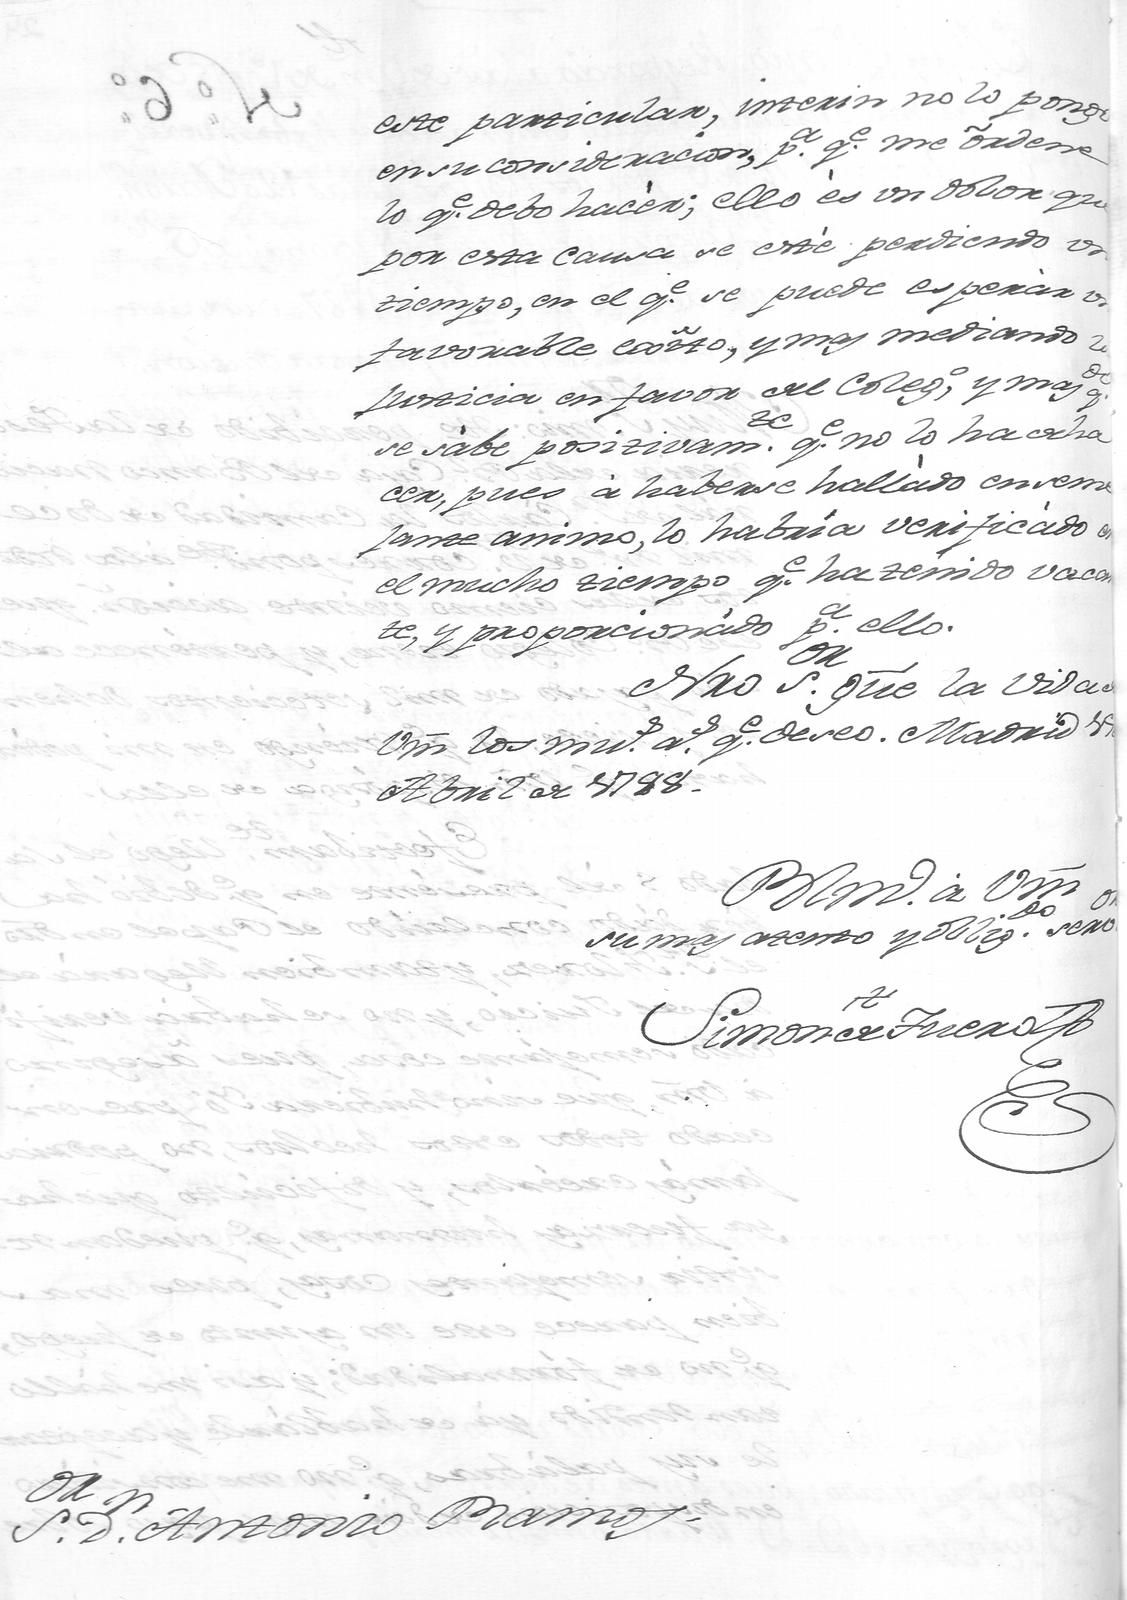 este particular, interin no lo ponga
en su consideracion, p.ª q.e me ordene
lo q.e debo hacèr; ello ès un dolor que
por esta causa se estè perdiendo un
tiempo, en el q.e se puede esperàr un
favorable exîto, y mas mediando la
Justicia en favor del Coleg.o, y mas de q.e
se sàbe positivam.te q.e no lo ha de ha
cer, pues à haberse hallàdo en seme
jante animo, lo habria verificàdo en
el mucho tiempo q.e ha tenido vacan
te, y proporcionàdo p.ª ello.
Nro S.or gūe la vida de
Vm̄ los mu.s a.s q.e deseo. Madrid
Abril de 1788.
BLM.d à Vm̄
su mas atento y oblig.do serv.or
Simon de Fuero
S.or D.n Antonio Ramos.
N.o 6.o